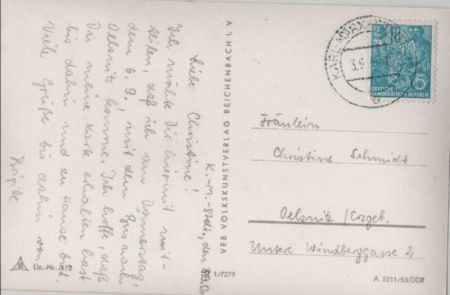 K.-M.-Stdt, den
Liebe Christine!
Ich möchte Dir hiermit mit-
teilen, daß ich am Donnerstag,
dem 6. 9. mit dem Zug nach
Oelsnitz komme. Ich hoffe, daß
Du meine Karte erhalten hast
bis dahin und zu Hause bist.
Viele Grüße bis dahin von
Brigitte
Liz.-Nr. 372
VEB VOLKSKUNSTVERLAG REICHENBACH I. V
1/7279
KARL-MARX-
DEUTSCHE
DEMOKRATISCHE REPUBLIK
Fräulein
Christine Schmidt
Oelsnitz/Erzgeb.
Untere Windberggasse 2
A 5211/53/DDR